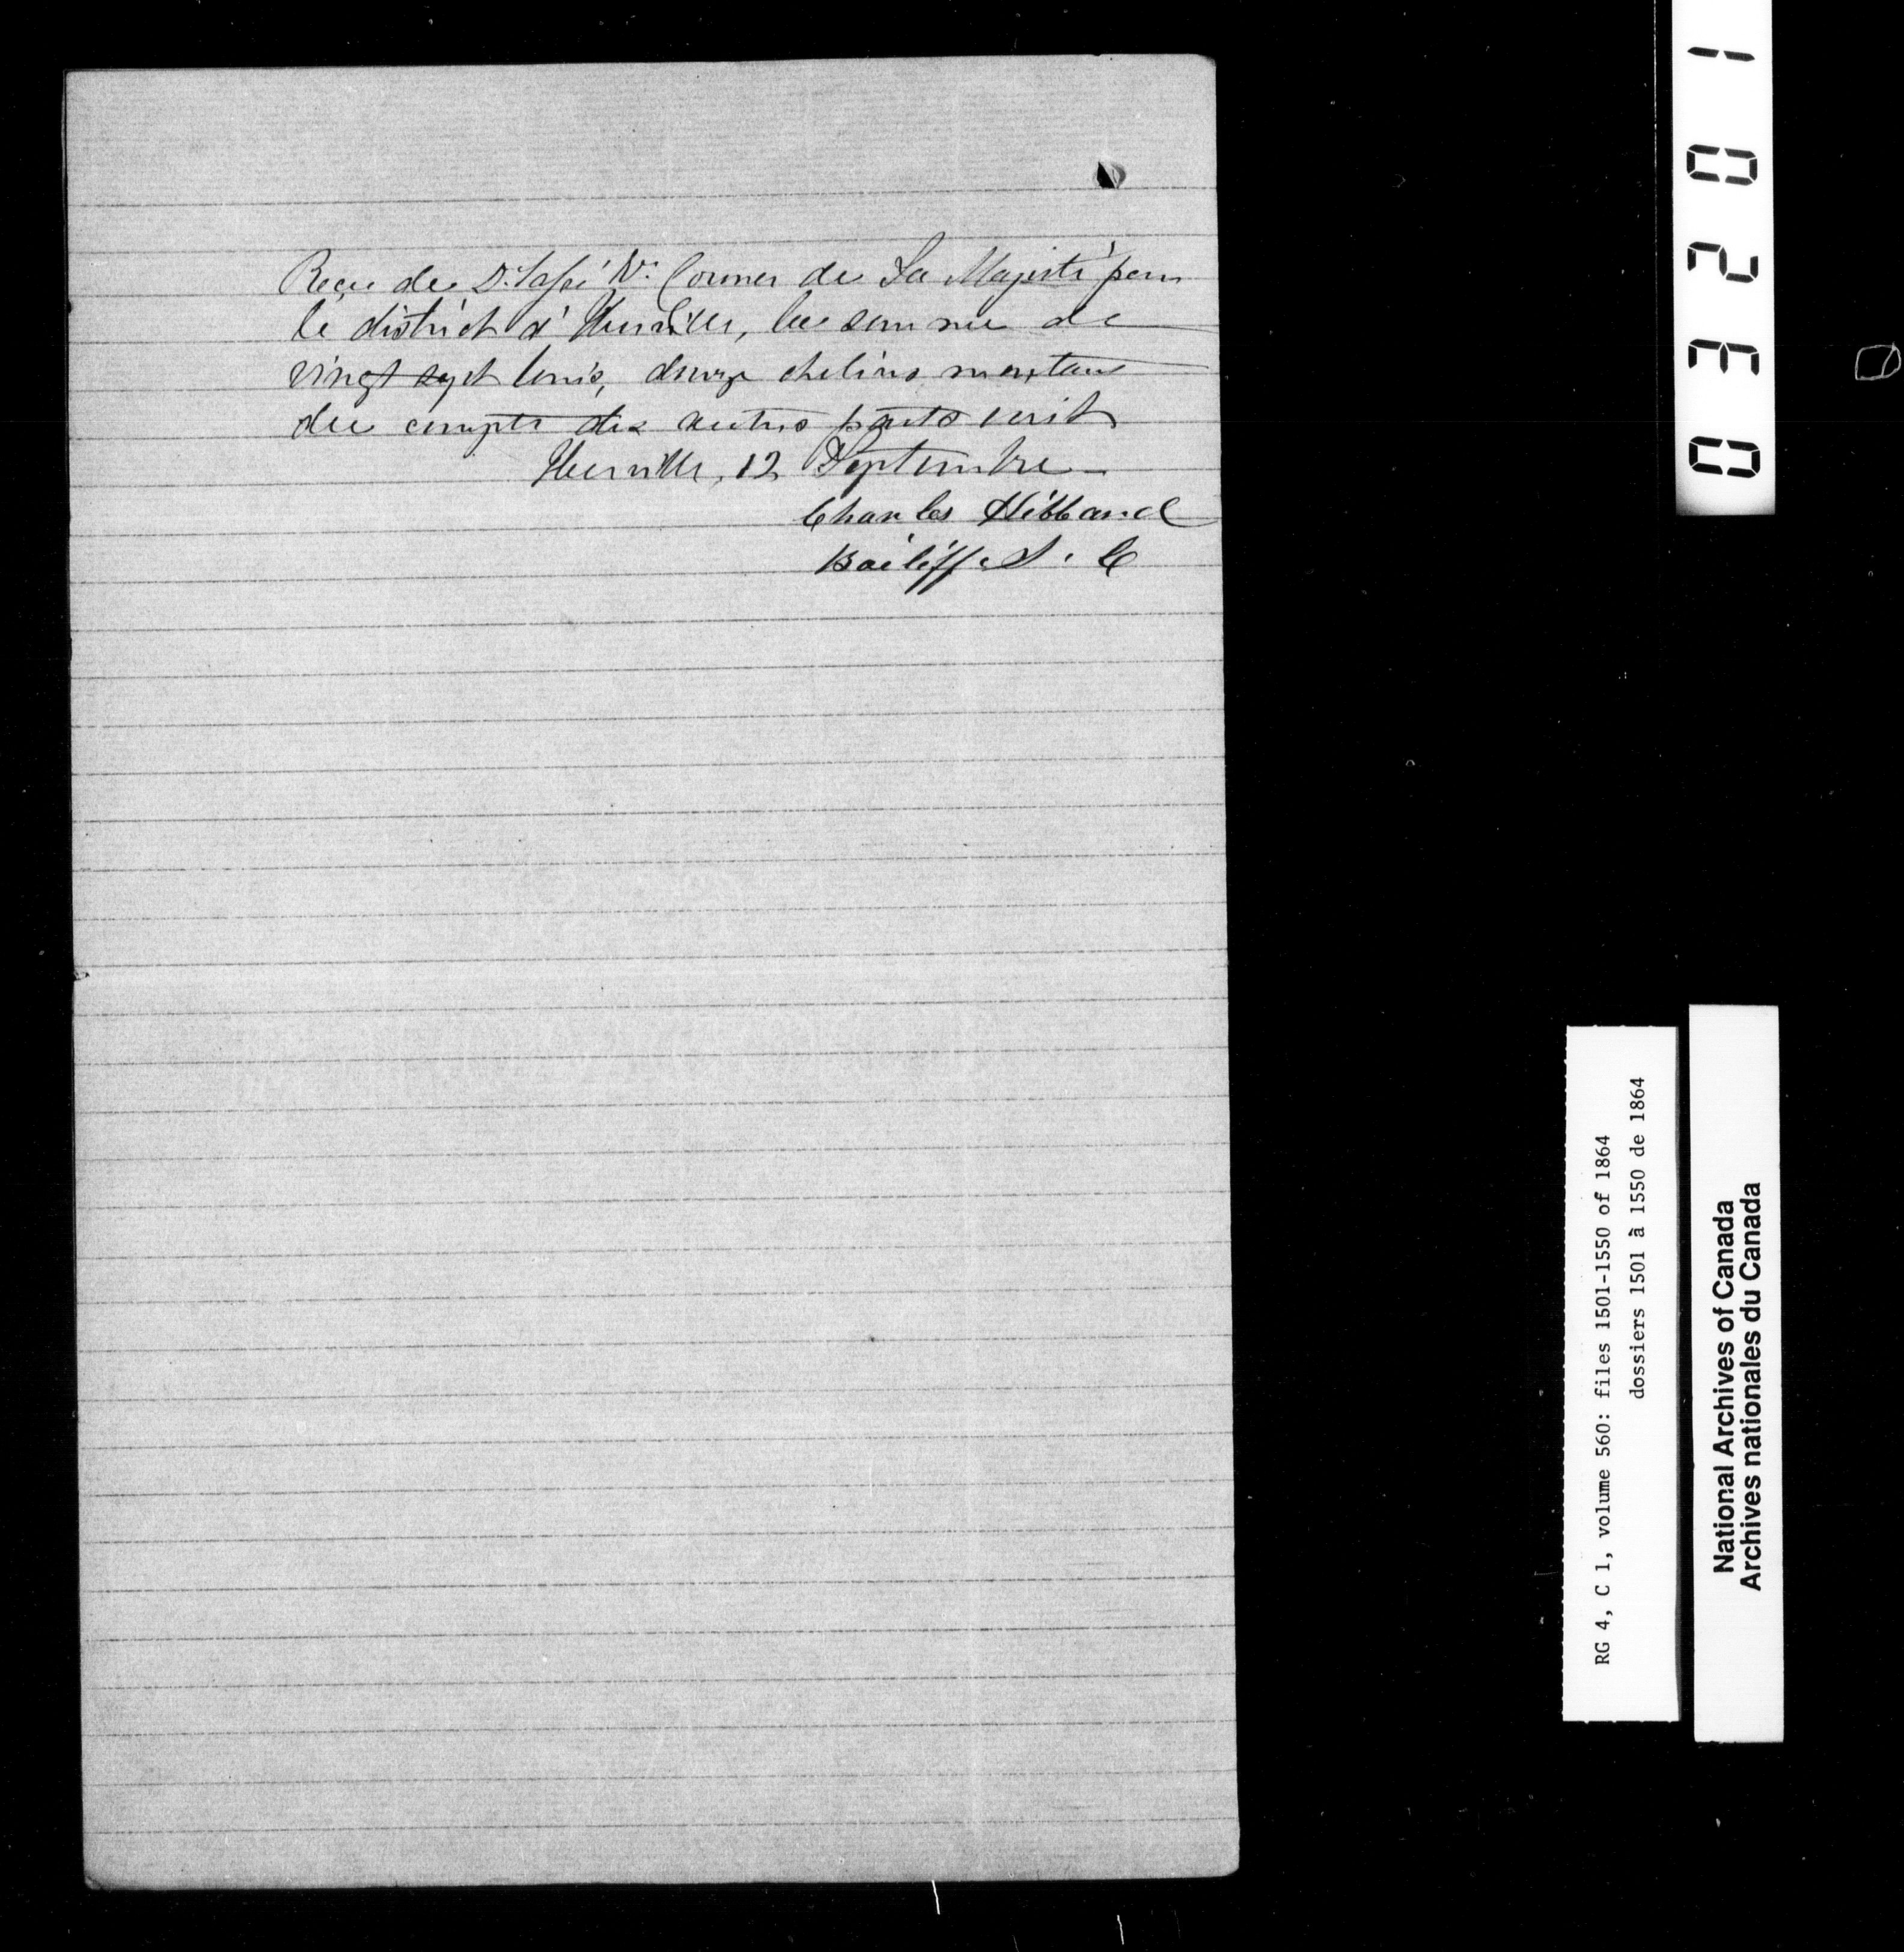 Recu de D. Coroner de Sa Majesté pour
le district d'Iberville, la somme de
vingt sept louis, douze chelins montant
du compte des autres parts
Iberville, 12 Septembre
Charles Hibbard
Bailiff S. C
03201
RG 4, C 1, volume 560: files 1501-1550 of 1864
dossiers 1501 à 1550 de 1864
National Archives of Canada
Archives nationales du Canada